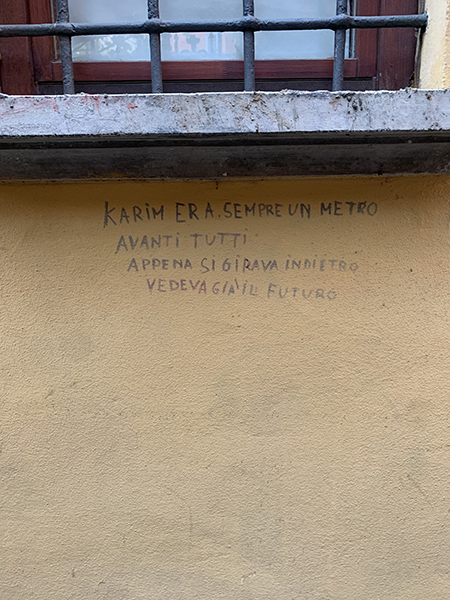 KARIM ERA SEMPRE UN METRO
AVANTI TUTTI
APPENA SI GIRAVA INDIETRO
VEDEVA GIA' IL FUTURO